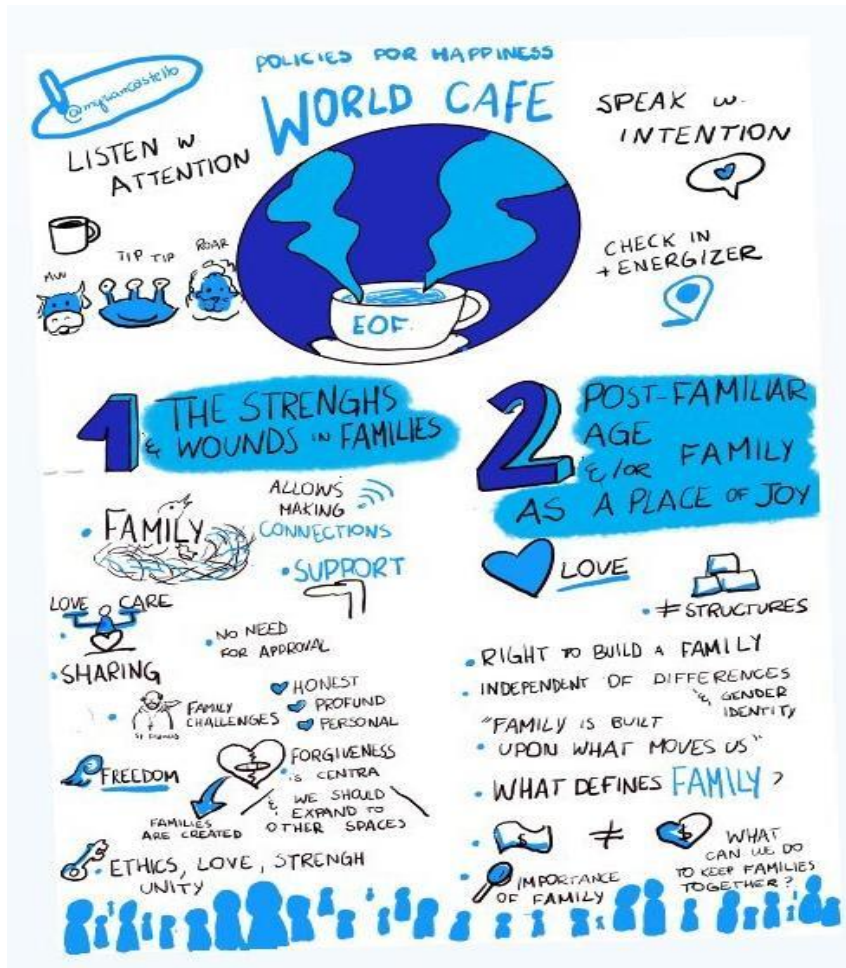 @myriancastello
POLICIES FOR HAPPINESS
WORLD CAFE
LISTEN W
ATTENTION
SPEAK W.
INTENTION
TIP TIP
ROAR
CHECK IN
+ ENERGIZER
EOF.
1 THE STRENGHS
& WOUNDS IN FAMILIES
• FAMILY
ALLOWS
MAKING
CONNECTIONS
• SUPPORT
LOVE CARE
• SHARING
• NO NEED
FOR APPROVAL
• FAMILY
CHALLENGES
HONEST
PROFUND
PERSONAL
FREEDOM
FORGIVENESS
IS CENTRA
FAMILIES
ARE CREATED
& WE SHOULD
EXPAND TO
OTHER SPACES
• ETHICS, LOVE, STRENGH
UNITY
2 POST-FAMILIAR
AGE
&/OR FAMILY
AS A PLACE OF JOY
LOVE
• ≠ STRUCTURES
• RIGHT TO BUILD A FAMILY
• INDEPENDENT OF DIFFERENCES
& GENDER
IDENTITY
"FAMILY IS BUILT
• UPON WHAT MOVES US"
• WHAT DEFINES FAMILY?
• $ ≠ $
WHAT
CAN WE DO
TO KEEP FAMILIES
TOGETHER?
• IMPORTANCE
OF FAMILY